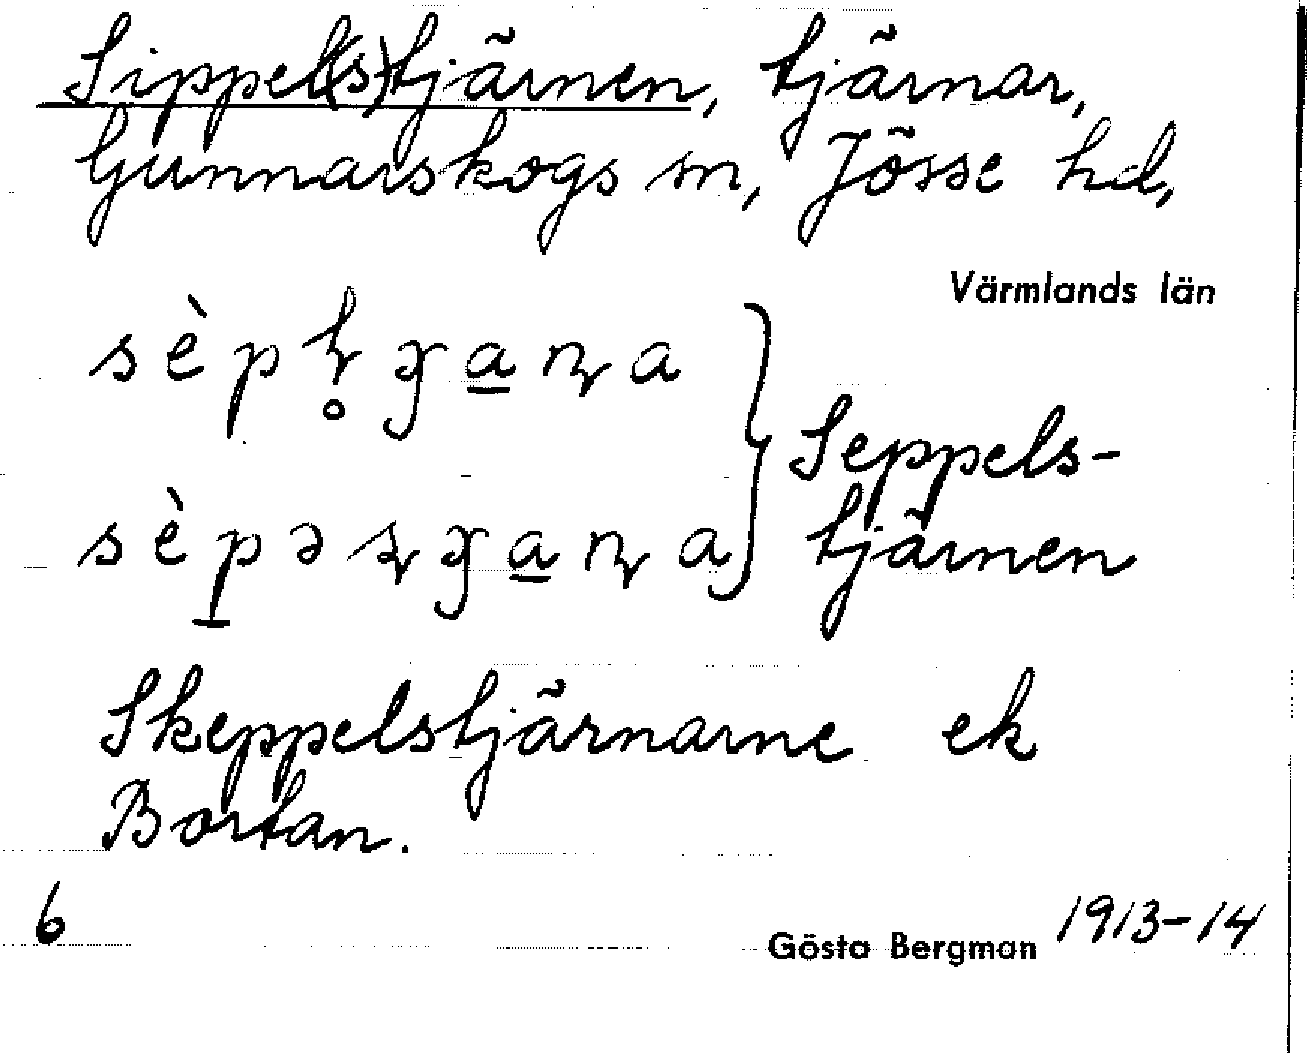 Sippel(s)tjärnen, tjärnar,
Gunnarskogs sn, Jösse hd,
Värmlands län
Seppels-
tjärnen
Skeppelstjärnarne ek
Bortan.
6
Gösta Bergman 1913-14